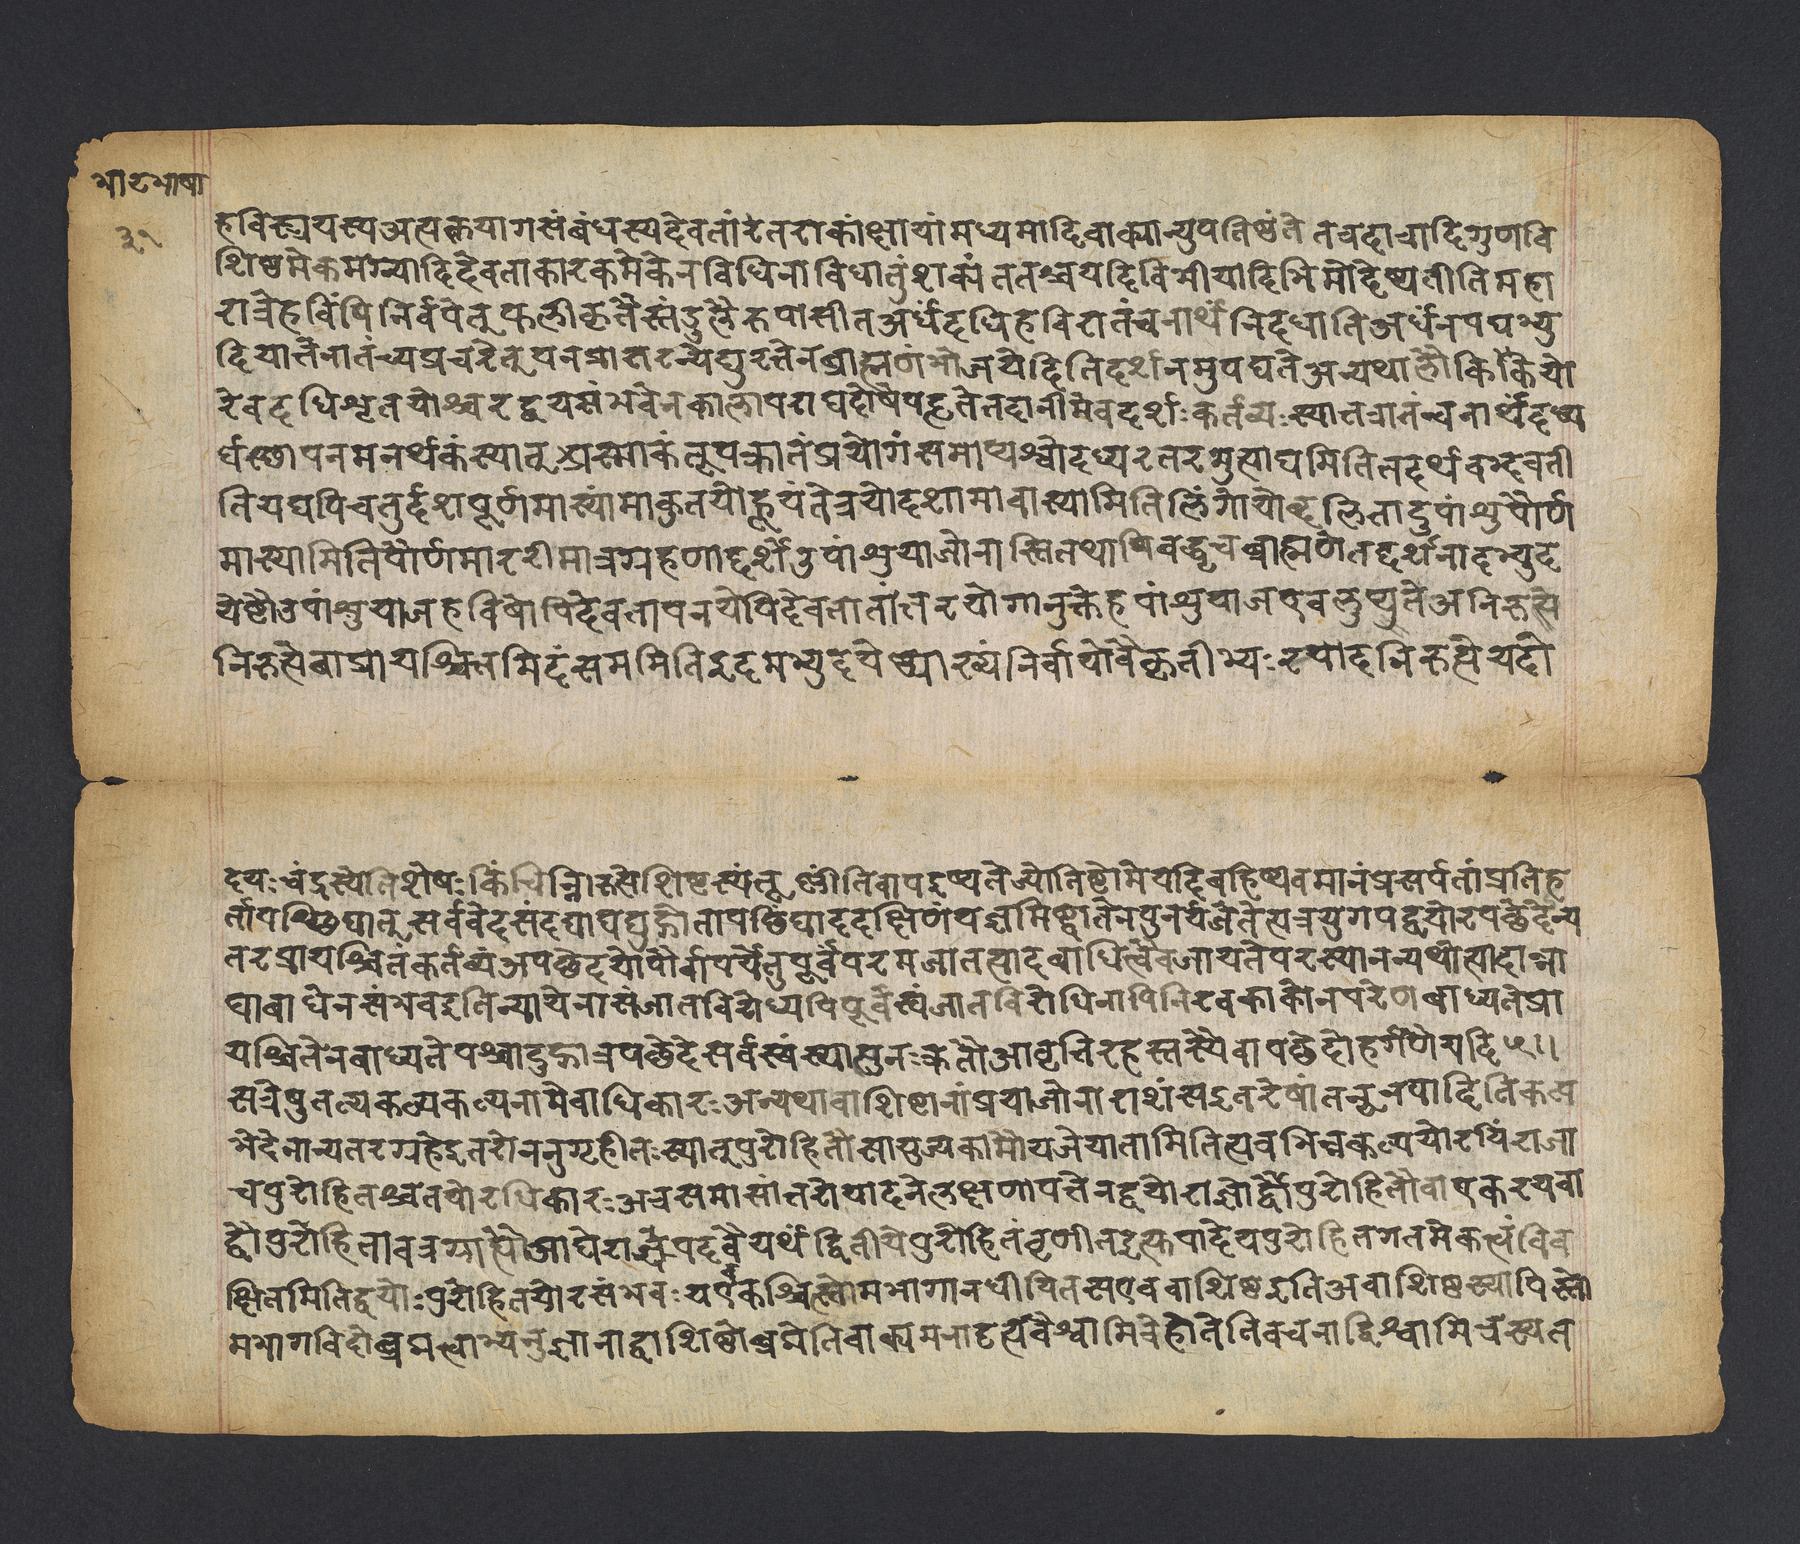 भाटभाषा
३१
हविस्त्रयस्य अत्यक्तयागसंबंधस्य देवतांटतराकांक्षायां मध्यमादिवाक्यान्युपतिष्ठंते तवदात्रादिगुणवि
शिष्टमेकमग्न्यादिदेवताकारकमेकेन विधिना विधातुं शक्यं ततश्च यदि विभीयादिभिमोदेष्यतीति महा
रात्रे हविंषि निर्वपेत् फलीकृतैस्तंडुलैरुपासीत अर्धं दधि हविरातंचनार्थं निदधाति अर्धं न यद्यभ्यु
दियात्तेनातंच्य प्रचरेत् यनप्रातरन्येद्युरत्तेन ब्राह्मणं भोजयेदिति दर्शनमुपपद्यते अन्यथा लौकिकयो
रेव दधिशृतयोश्चरद्वयसंभवेन कालापराधदोषेपहृते तदानीमेव दर्शः कर्तव्यः स्यात्तत्रातंचनार्थं दध्य
र्धस्थापनमनर्थकं स्यात् अस्माकं तूपक्रांतं प्रयोगं समाप्य श्वोदध्यरतरमुत्पाद्यमिति तदर्थं वभ्हवती
ति यद्यपि चतुर्दश पूर्णमास्यांमाकुतयोहूयंते त्रयोदशामावास्यामिति लिंगायोव्दलिनादुपांशु पौर्ण
मास्यामिति पौर्णमाररीमात्रग्रहणाद्दर्शे उपांशुयाजो नास्ति तथापि वव्दृचब्राह्मणे तद्दर्शनादभ्युद
येष्टौ उपांशुयाजहविषोपि देवतापनयेपि देवतातांतरयोगानुक्तेहपांशुयाज एव लुप्युते अनिरुप्ते
निरुप्ते वा प्रायश्चित्तमिदं सममिति इदमभ्युदयेष्ट्याख्यं निर्वाथोवैकृतीभ्यःस्यादनिरुप्ते यदी
दयःचंद्रस्येति शेषः किंचिन्निरुप्ते शिष्टस्यं तू ष्णींतिवापदृष्यते ज्योतिष्टोमे यदि बहिष्पवमानं प्रसर्पतां प्रतिह
र्तापश्छिद्यात् सर्ववेदसं दद्याद्यद्युद्गातापछिंद्याददक्षिणं यज्ञमिष्ट्वा तेन पुनर्यजेतेत्यत्र युगपद्द्वयोरपछेदेन्य
तरप्रायश्चितं कर्तव्यं अपछेदयोर्पौर्वापर्ये तु पूर्वं परमजातत्वादबाधित्वैव जायते परस्यानन्यथोत्पादान्ना
द्याबाधेन संभवइति न्यायेनासंजातविरोध्यपि पूर्वं स्वंजातविरोधिनापि निरवकाकोनपरेण बाध्यते प्रा
यश्चितेन बाध्यते पश्चादुद्गात्रपछेदे सर्वस्वं स्यात्पुनःक्रतौ आवृत्तिरहस्तस्यैवापछेदोहर्गणे यदि ५।।
सत्रेषु तल्यकल्पकल्पनामेवाधिकारः अन्यथा वाशिष्टानां प्रयाजोनाराशंसइतरेषां तनूनपादिति कल्प
भेदेनान्यतरग्रहेइतरोननुगृहीतःस्यात् पुरोहितौ सायुज्यकामौ यजेयातामिति त्वव भिन्नकल्पयोरपि राजा
च पुरोहितश्च तयोरधिकारः अत्र समासांतरोयादनेलक्षणापत्तेन द्वयोराज्ञोर्द्वौ पुरोहितौ वा एकस्य वा
द्वौ पुरोहितावत्रग्राह्यौ आद्ये राज्ञेपदवैयर्थं द्वितीये पुरोहितं वृणीतइत्युपादेयपुरोहितगतमेकत्वं विव
क्षितमिति द्वयोःपुरोहितयोरसंभवः यएकश्चित्स्तोमभागानधीयित सएववाशिष्ठइति अवाशिष्ठस्यापि स्तो
मभागविदोब्रह्मत्वाभ्यनुज्ञानाद्वाशिष्ठोब्रह्मेति वाक्यमनादृत्य वैश्वामित्रे होतेति वचनाद्विश्वामित्रंस्यत